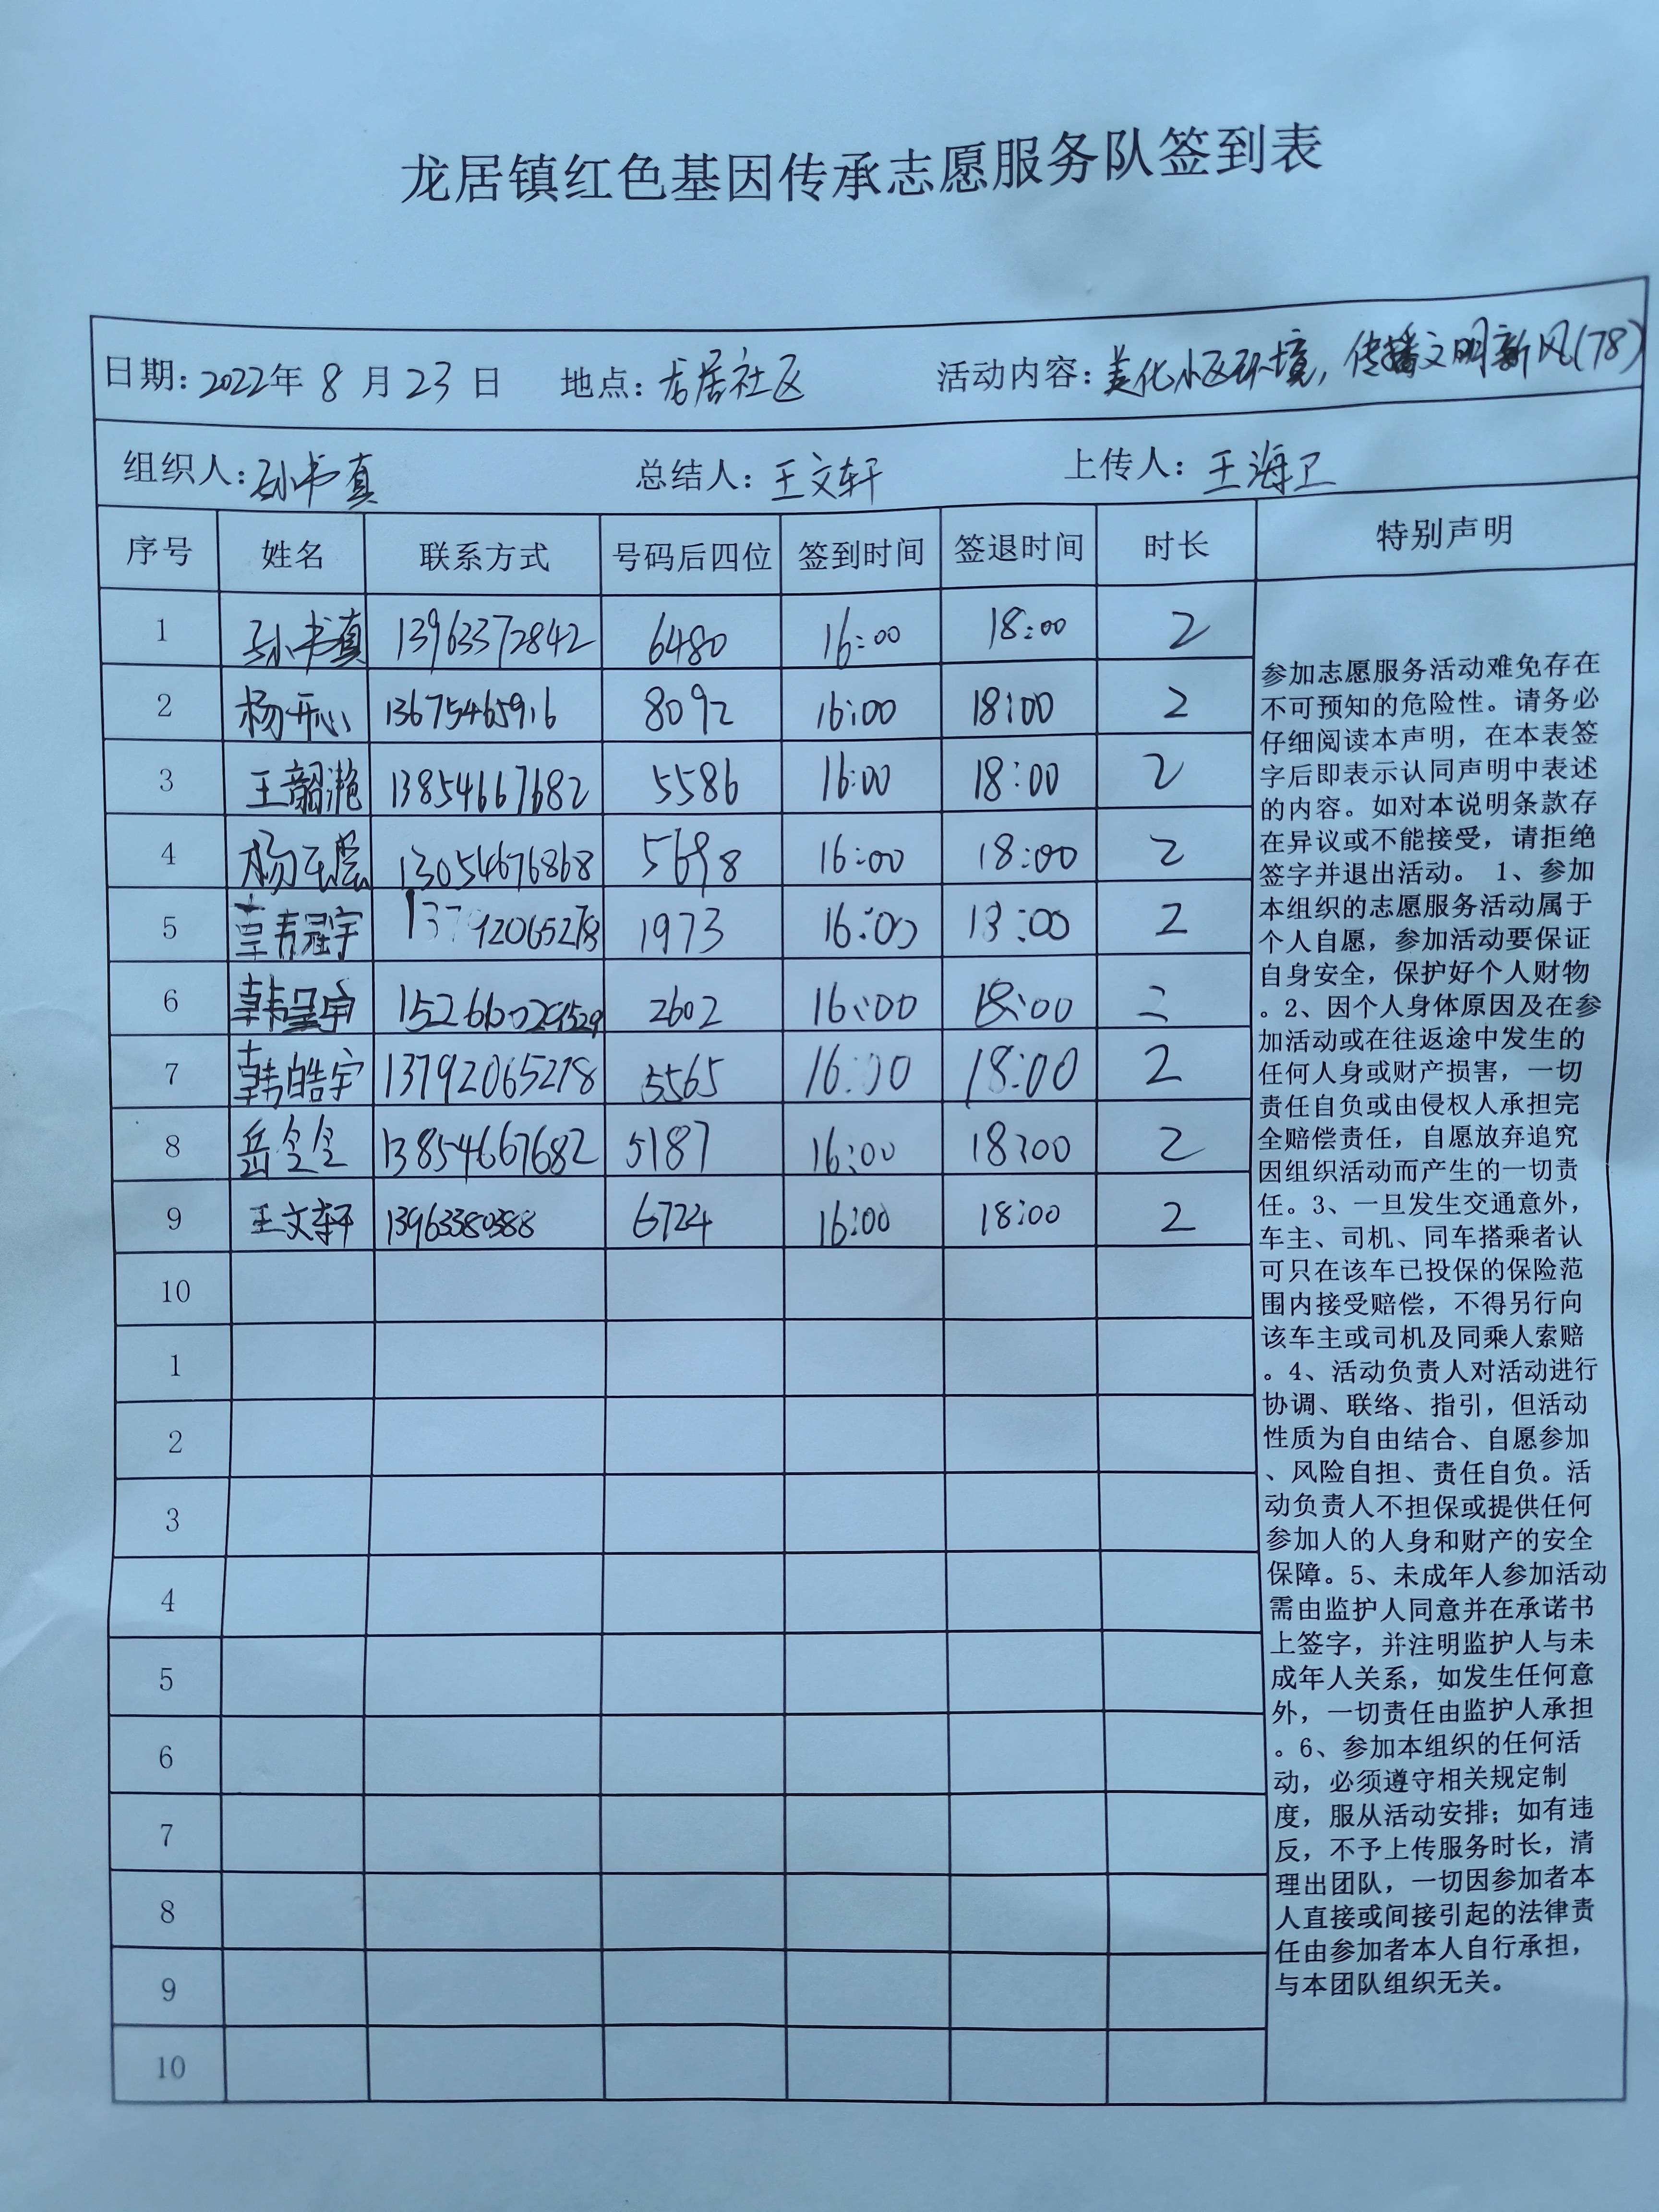 龙居镇红色基因传承志愿服务队签到表
日期: 2022年 8 月 23 日 地点: 龙居社区 活动内容: 美化小区环境, 传播文明新风(78)
组织人: 孙书真 总结人: 王文轩 上传人: 王海卫
序号 姓名 联系方式 号码后四位 签到时间 签退时间 时长 特别声明
1 孙书真 13963372842 6480 16:00 18:00 2
2 杨开心 13675465916 8092 16:00 18:00 2
3 王韶滟 13854667682 5586 16:00 18:00 2
4 杨 13054676868 5698 16:00 18:00 2
5 韩冠宇 13792065278 1973 16:00 18:00 2
6 韩呈宇 2602 16:00 18:00 2
7 韩皓宇 13792065278 5565 16:00 18:00 2
8 岳令令 13854667682 5187 16:00 18:00 2
9 王文轩 13963380388 6724 16:00 18:00 2
10
1
2
3
4
5
6
7
8
9
10
参加志愿服务活动难免存在
不可预知的危险性。请务必
仔细阅读本声明，在本表签
字后即表示认同声明中表述
的内容。如对本说明条款存
在异议或不能接受，请拒绝
签字并退出活动。 1、参加
本组织的志愿服务活动属于
个人自愿，参加活动要保证
自身安全，保护好个人财物
。2、因个人身体原因及在参
加活动或在往返途中发生的
任何人身或财产损害，一切
责任自负或由侵权人承担完
全赔偿责任，自愿放弃追究
因组织活动而产生的一切责
任。3、一旦发生交通意外，
车主、司机、同车搭乘者认
可只在该车已投保的保险范
围内接受赔偿，不得另行向
该车主或司机及同乘人索赔
。4、活动负责人对活动进行
协调、联络、指引，但活动
性质为自由结合、自愿参加
、风险自担、责任自负。活
动负责人不担保或提供任何
参加人的人身和财产的安全
保障。5、未成年人参加活动
需由监护人同意并在承诺书
上签字，并注明监护人与未
成年人关系，如发生任何意
外，一切责任由监护人承担
。6、参加本组织的任何活
动，必须遵守相关规定制
度，服从活动安排；如有违
反，不予上传服务时长，清
理出团队，一切因参加者本
人直接或间接引起的法律责
任由参加者本人自行承担，
与本团队组织无关。